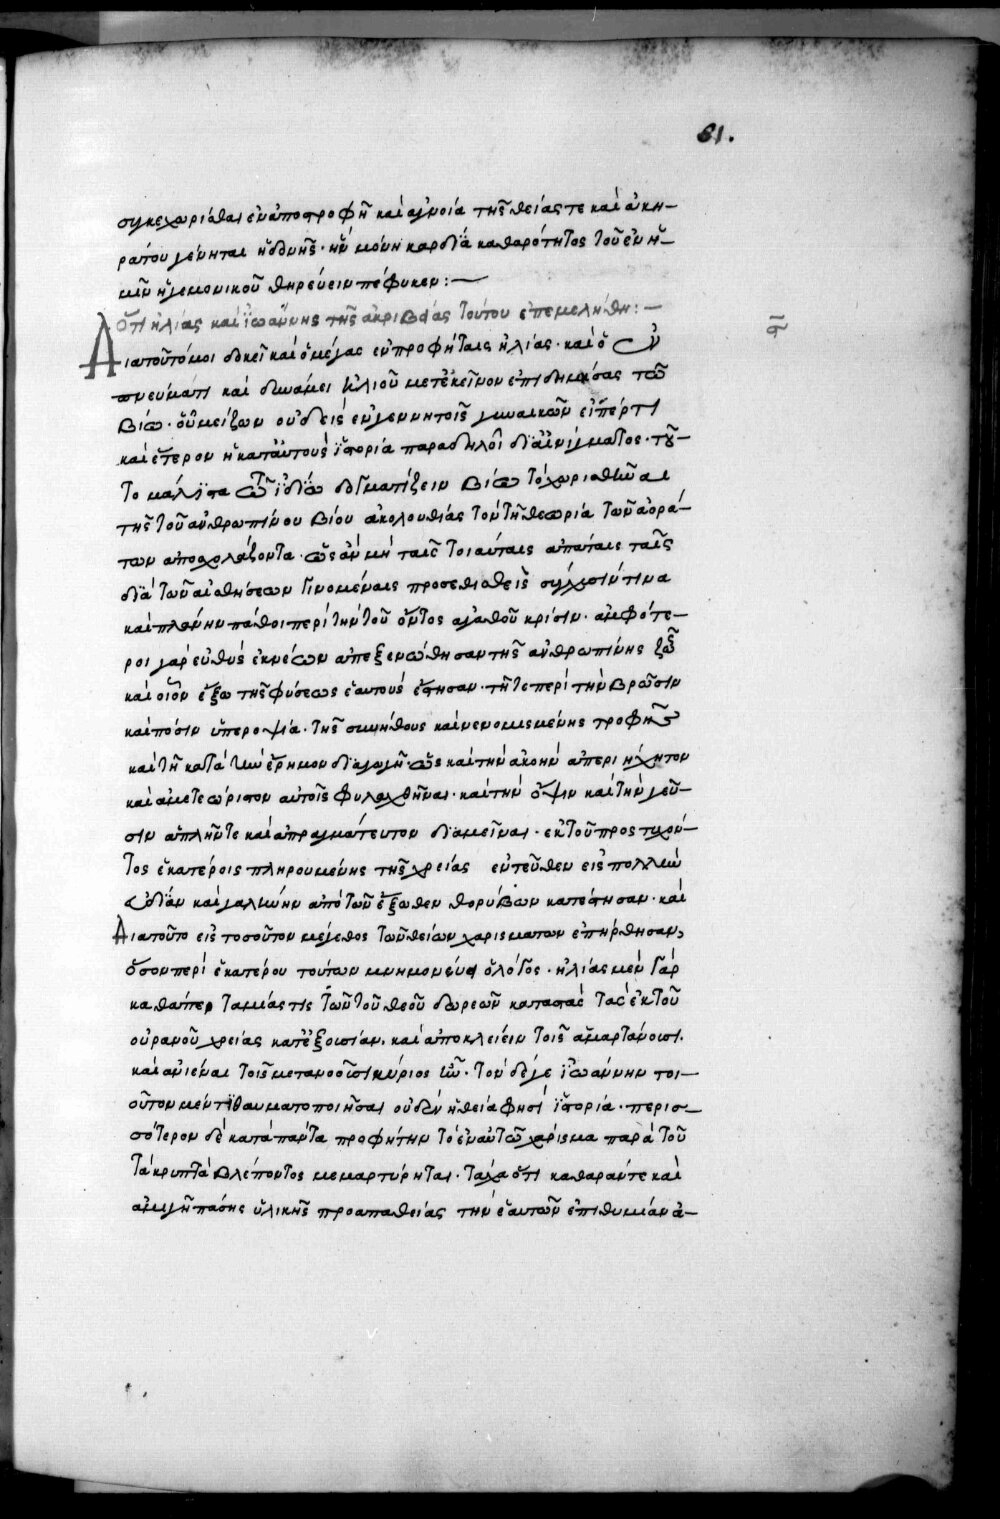 61.
συγκεχωρίσθαι ἐν ἀποστροφῇ καὶ ἀγνοία τῆς θείας τε καὶ ἀκη-
ράτου γένηται ἡδονῆς· ἣν μόνη καρδία καθαρότητος τοῦ ἐν ἡ-
μῖν ἡγεμονικοῦ θηρεύειν πέφυκεν:—
Ὅτι ἠλίας καὶ ἰωάννης τῆς ἀκριβείας τούτου ἐπεμελήθη:—
ς
Διὰ τοῦτό μοι δοκεῖ καὶ ὁ μέγας ἐν προφήταις ἠλίας· καὶ ὁ ἐν
πνεύματι καὶ δυνάμει ἠλιοῦ μετ' ἐκεῖνον ἐπιδημήσας τῶ
βίω· οὗ μείζων οὐδεὶς ἐν γεννητοῖς γυναικῶν εἴπέρ τι
καὶ ἕτερον ἡ κατ' αὐτοὺς ἱστορία παραδηλοῖ δι' αἰνίγματος· τοῦ-
το μάλιστα τῶ ἰδίω δογματίζειν βίω τὸ χωρισθῆναι
τῆς τοῦ ἀνθρωπίνου βίου ἀκολουθίας τὸν τῆ θεωρία τῶν ἀορά-
των ἀποσχολάζοντα· ὡς ἂν μὴ ταῖς τοιαύταις ἀπάταις ταῖς
διὰ τῶν αἰσθήσεων γινομέναις προσεθισθεὶς σύγχυσίν τινα
καὶ πλάνην πάθοι περὶ τὴν τοῦ ὄντος ἀγαθοῦ κρίσιν· ἀμφότε-
ροι γὰρ εὐθὺς ἐκ νέων ἀπεξενώθησαν τῆς ἀνθρωπίνης ζωῆς
καὶ οἷον ἔξω τῆς φύσεως ἑαυτοὺς ἔστησαν· τῆ τε περὶ τὴν βρῶσιν
καὶ πόσιν ὑπεροψία· τῆς συνήθους καὶ νενομισμένης τροφῆς
καὶ τῆ κατὰ τὴν ἔρημον διαγωγῆ· ὡς καὶ τὴν ἀκοὴν ἀπεριήχητον
καὶ ἀμετεώριστον αὐτοῖς φυλαχθῆναι· καὶ τὴν ὄψιν καὶ τὴν γεῦ-
σιν ἁπλῆν τε καὶ ἀπραγμάτευτον διαμεῖναι· ἐκ τοῦ προστυχόν-
τος ἑκατέροις πληρουμένης τῆς χρείας ἐντεῦθεν εἰς πολλὴν
εὐδίαν καὶ γαλήνην ἀπὸ τῶν ἔξωθεν θορύβων κατέστησαν· καὶ
διὰ τοῦτο εἰς τοσοῦτον μέγεθος τῶν θείων χαρισμάτων ἐπήρθησαν,
ὅσον περὶ ἑκατέρου τούτων μνημονεύει ὁ λόγος· ἠλίας μὲν γὰρ
καθάπερ ταμίας τις τῶν τοῦ θεοῦ δωρεῶν καταστὰς τὰς ἐκ τοῦ
οὐρανοῦ χρείας κατ' ἐξουσίαν· καὶ ἀποκλείειν τοῖς ἁμαρτάνουσι·
καὶ ἀνιέναι τοῖς μετανοοῦσι κύριος ἦν· τὸν δέ γε ἰωάννην τοι-
οῦτον μέν τι θαυματοποιῆσαι οὐδὲν ἡ θεία φησὶ ἱστορία· περισ-
σότερον δὲ κατὰ πάντα προφήτην τὸ ἐν αὐτῶ χάρισμα παρὰ τοῦ
τὰ κρυπτὰ βλέποντος μεμαρτύρηται· τάχα ὅτι καθαράν τε καὶ
ἀμιγῆ πάσης ὑλικῆς προσπαθείας τὴν ἑαυτῶν ἐπιθυμίαν ἀ-